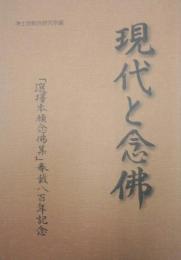 現代と念佛
『選擇本願念佛集』奉戴八百年記念
浄土宗総合研究所編